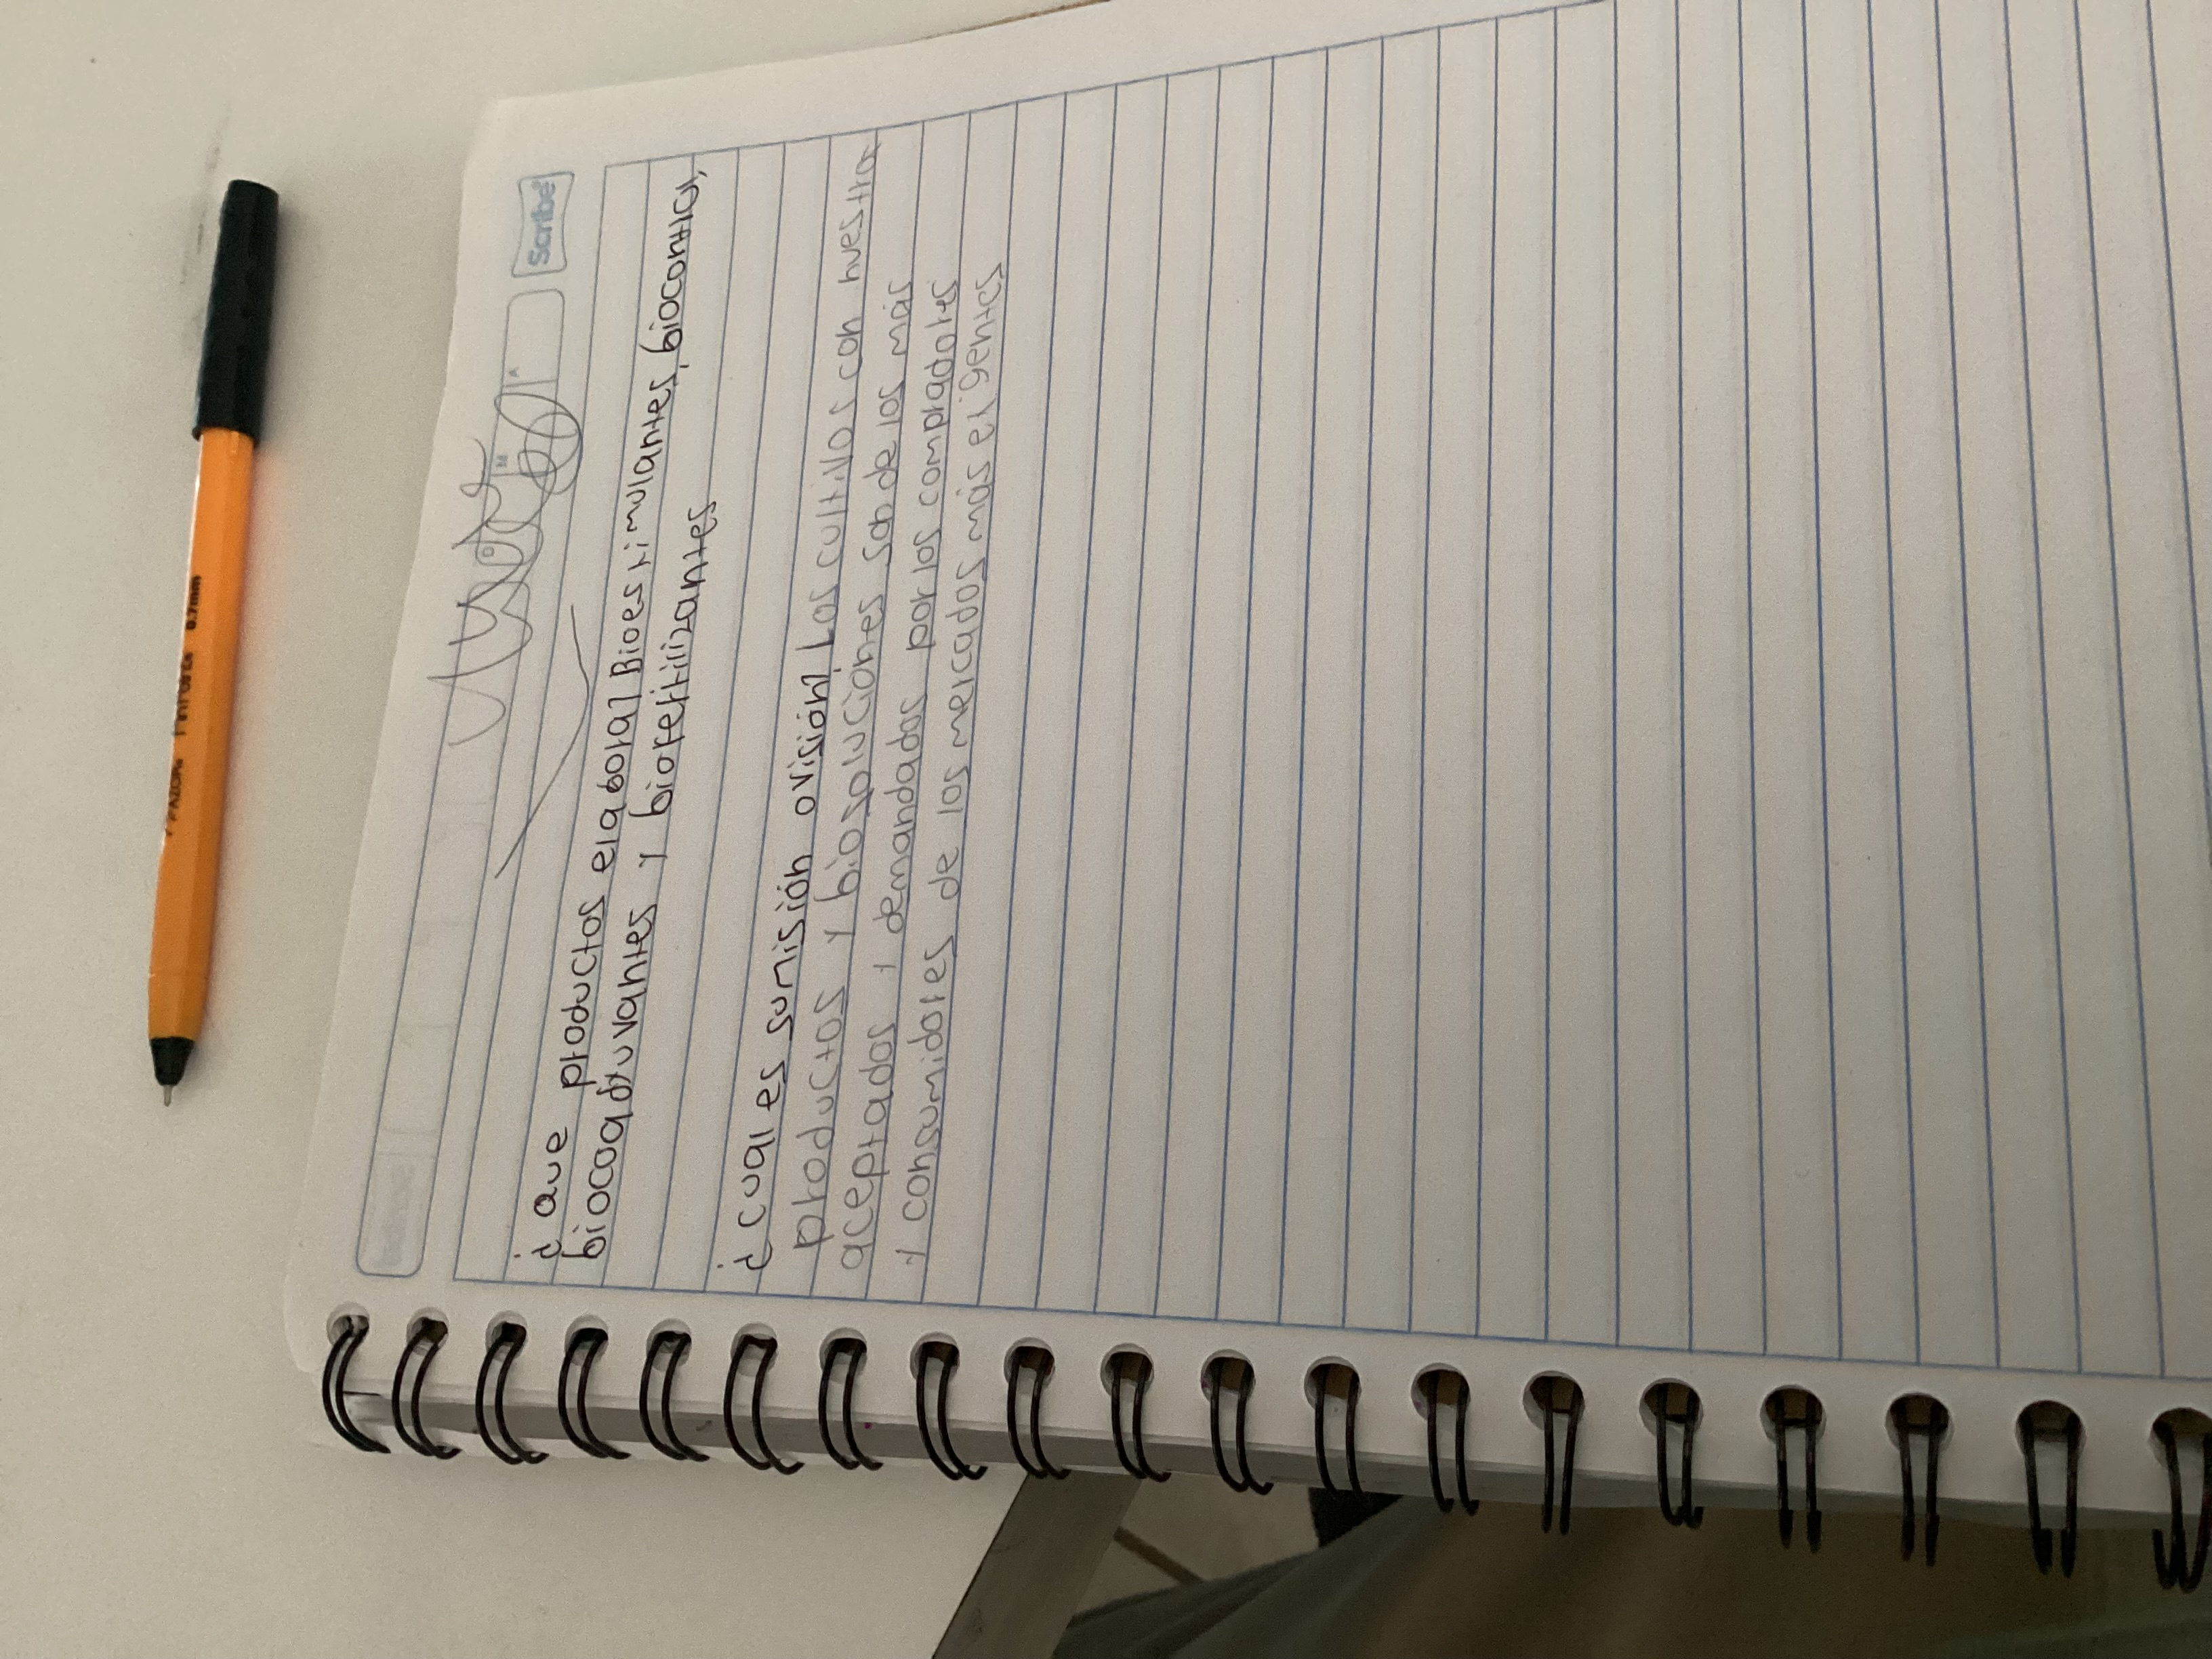 Scribe
¿ Que productos elabora? Bioestimulantes, biocontrol,
biocoadyuvantes y biofertilizantes
¿ cual es sumisión ovisión? Los cultivos con nuestra
productos y biosoluciones son de los más
aceptados y demandados por los compradores
y consumidores de los mercados más exigentes
0.7mm